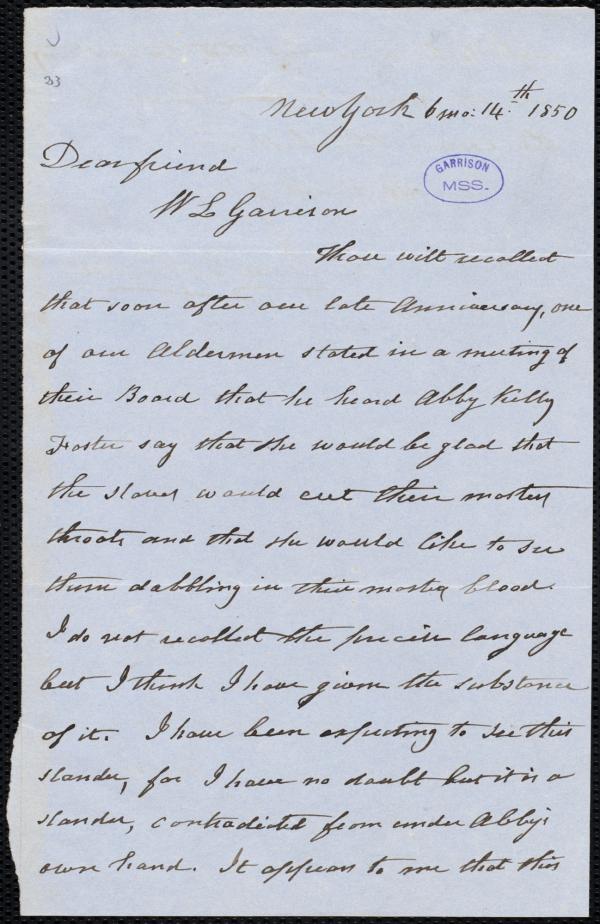 33
New York 6 mo: 14th 1850
GARRISON
MSS.
Dear friend
W L Garrison
Thou wilt recollect
that soon after our late Anniversary, one
of our Aldermen stated in a meeting of
their Board that he heard Abby Kelly
Foster say that she would be glad that
the slaves would cut their masters
throats and that she would like to see
them dabbling in their masters blood.
I do not recollect the precise language
but I think I have given the substance
of it. I have been expecting to see this
slander, for I have no doubt but it is a
slander, contradicted from under Abby's
own hand. It appears to me that this